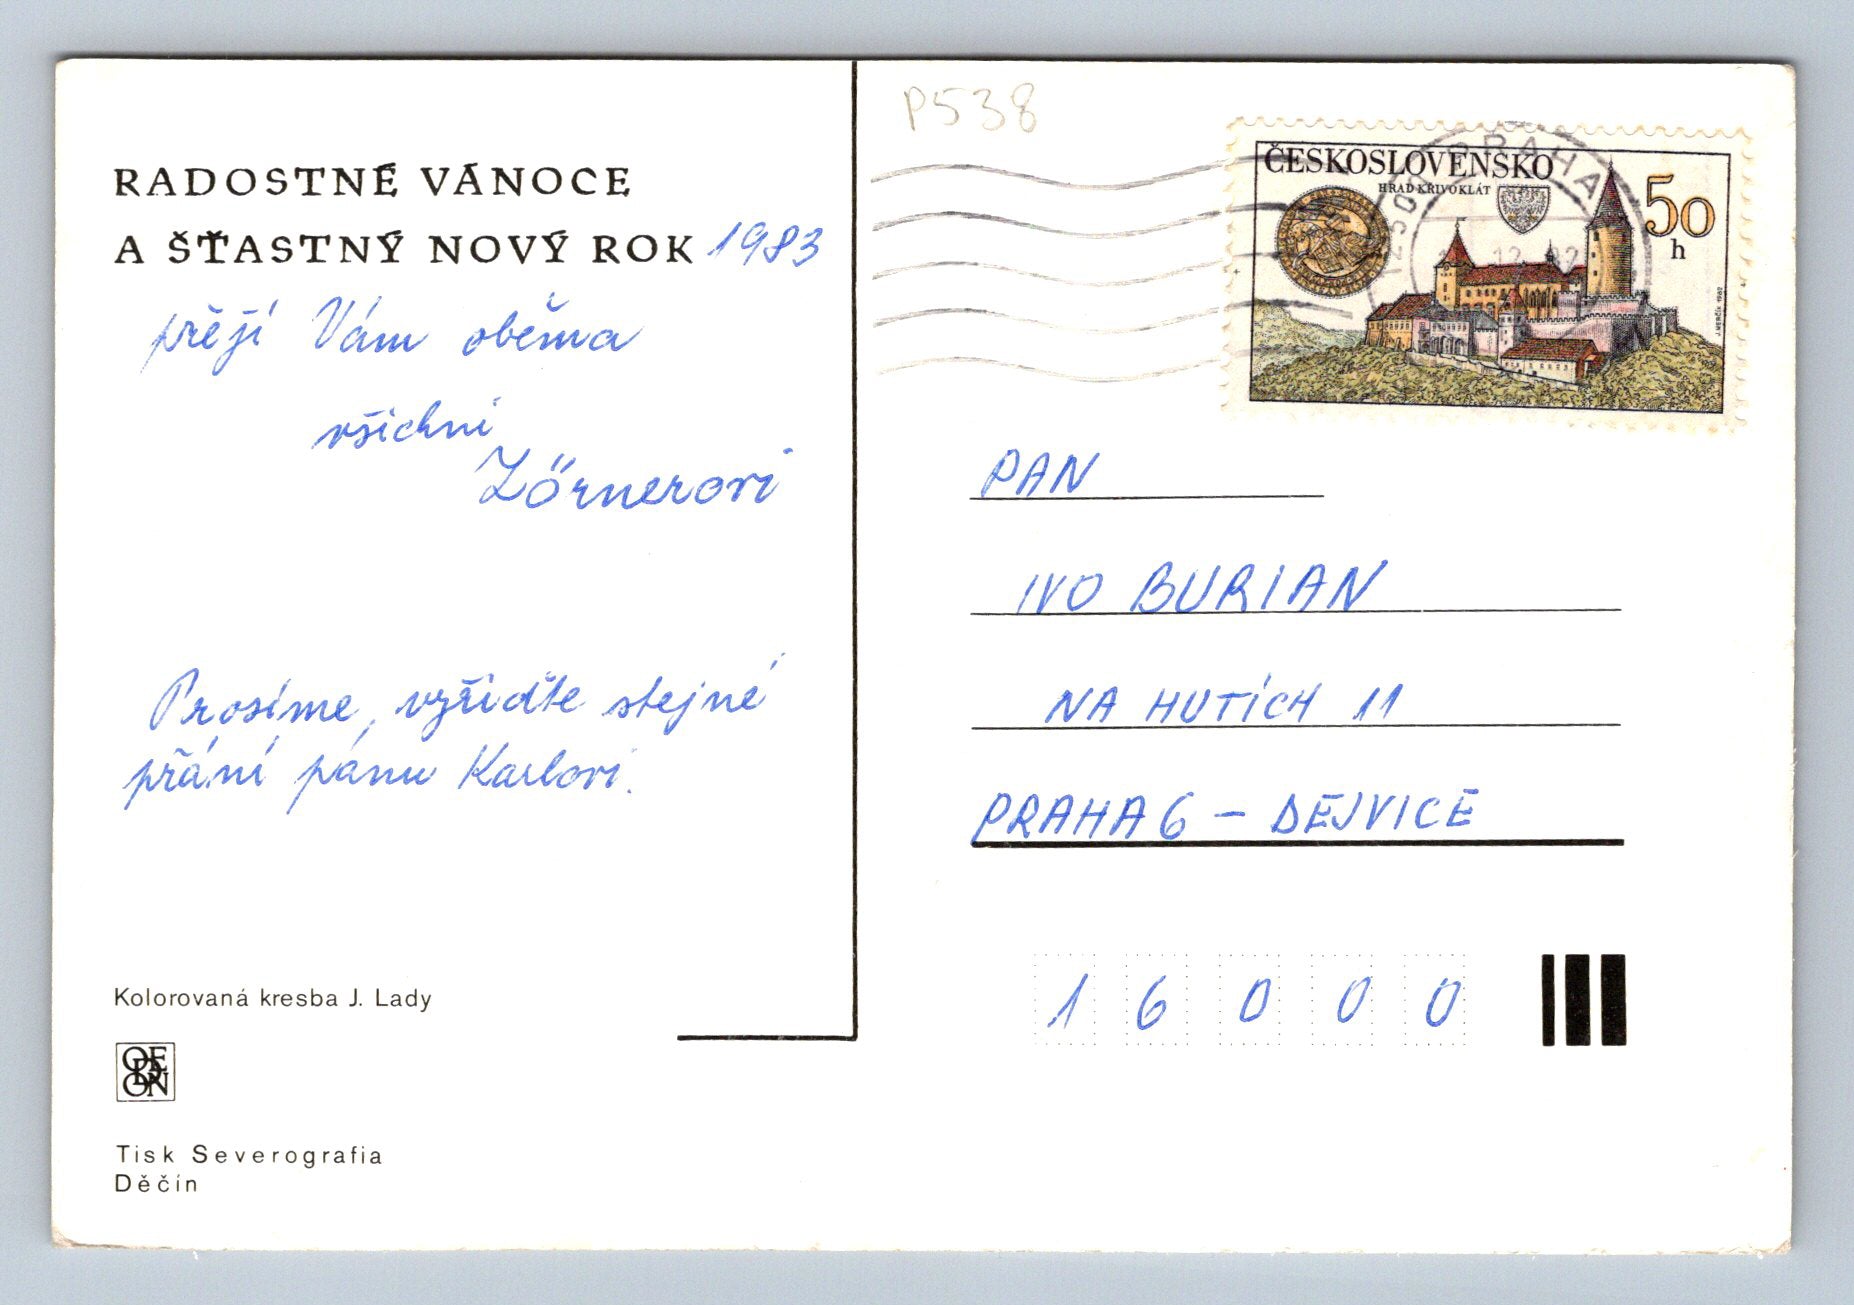 P538
RADOSTNÉ VÁNOCE
A ŠŤASTNÝ NOVÝ ROK 1983
přejí Vám oběma
všichni
Zörnerovi
Prosíme, vyřiďte stejné
přání pánu Karlovi.
Kolorovaná kresba J. Lady
ODEON
Tisk Severografia
Děčín
ČESKOSLOVENSKO
HRAD KŘIVOKLÁT
50
h
J. HERČÍK 1982
PRAHA
12
82
PAN
IVO BURIAN
NA HUTÍCH 11
PRAHA 6 – DEJVICE
16000